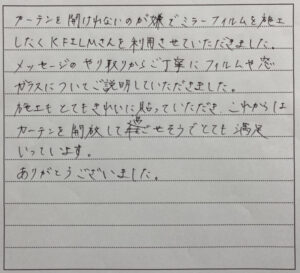 カーテンを開けれないのが嫌でミラーフィルムを施工
したくKFILMさんを利用させていただきました。
メッセージのやり取りからご丁寧にフィルムや窓
ガラスについてご説明していただきました。
施工もとてもきれいに貼っていただき、これからは
カーテンを開放して過ごせそうでとても満足
いっています。
ありがとうございました。